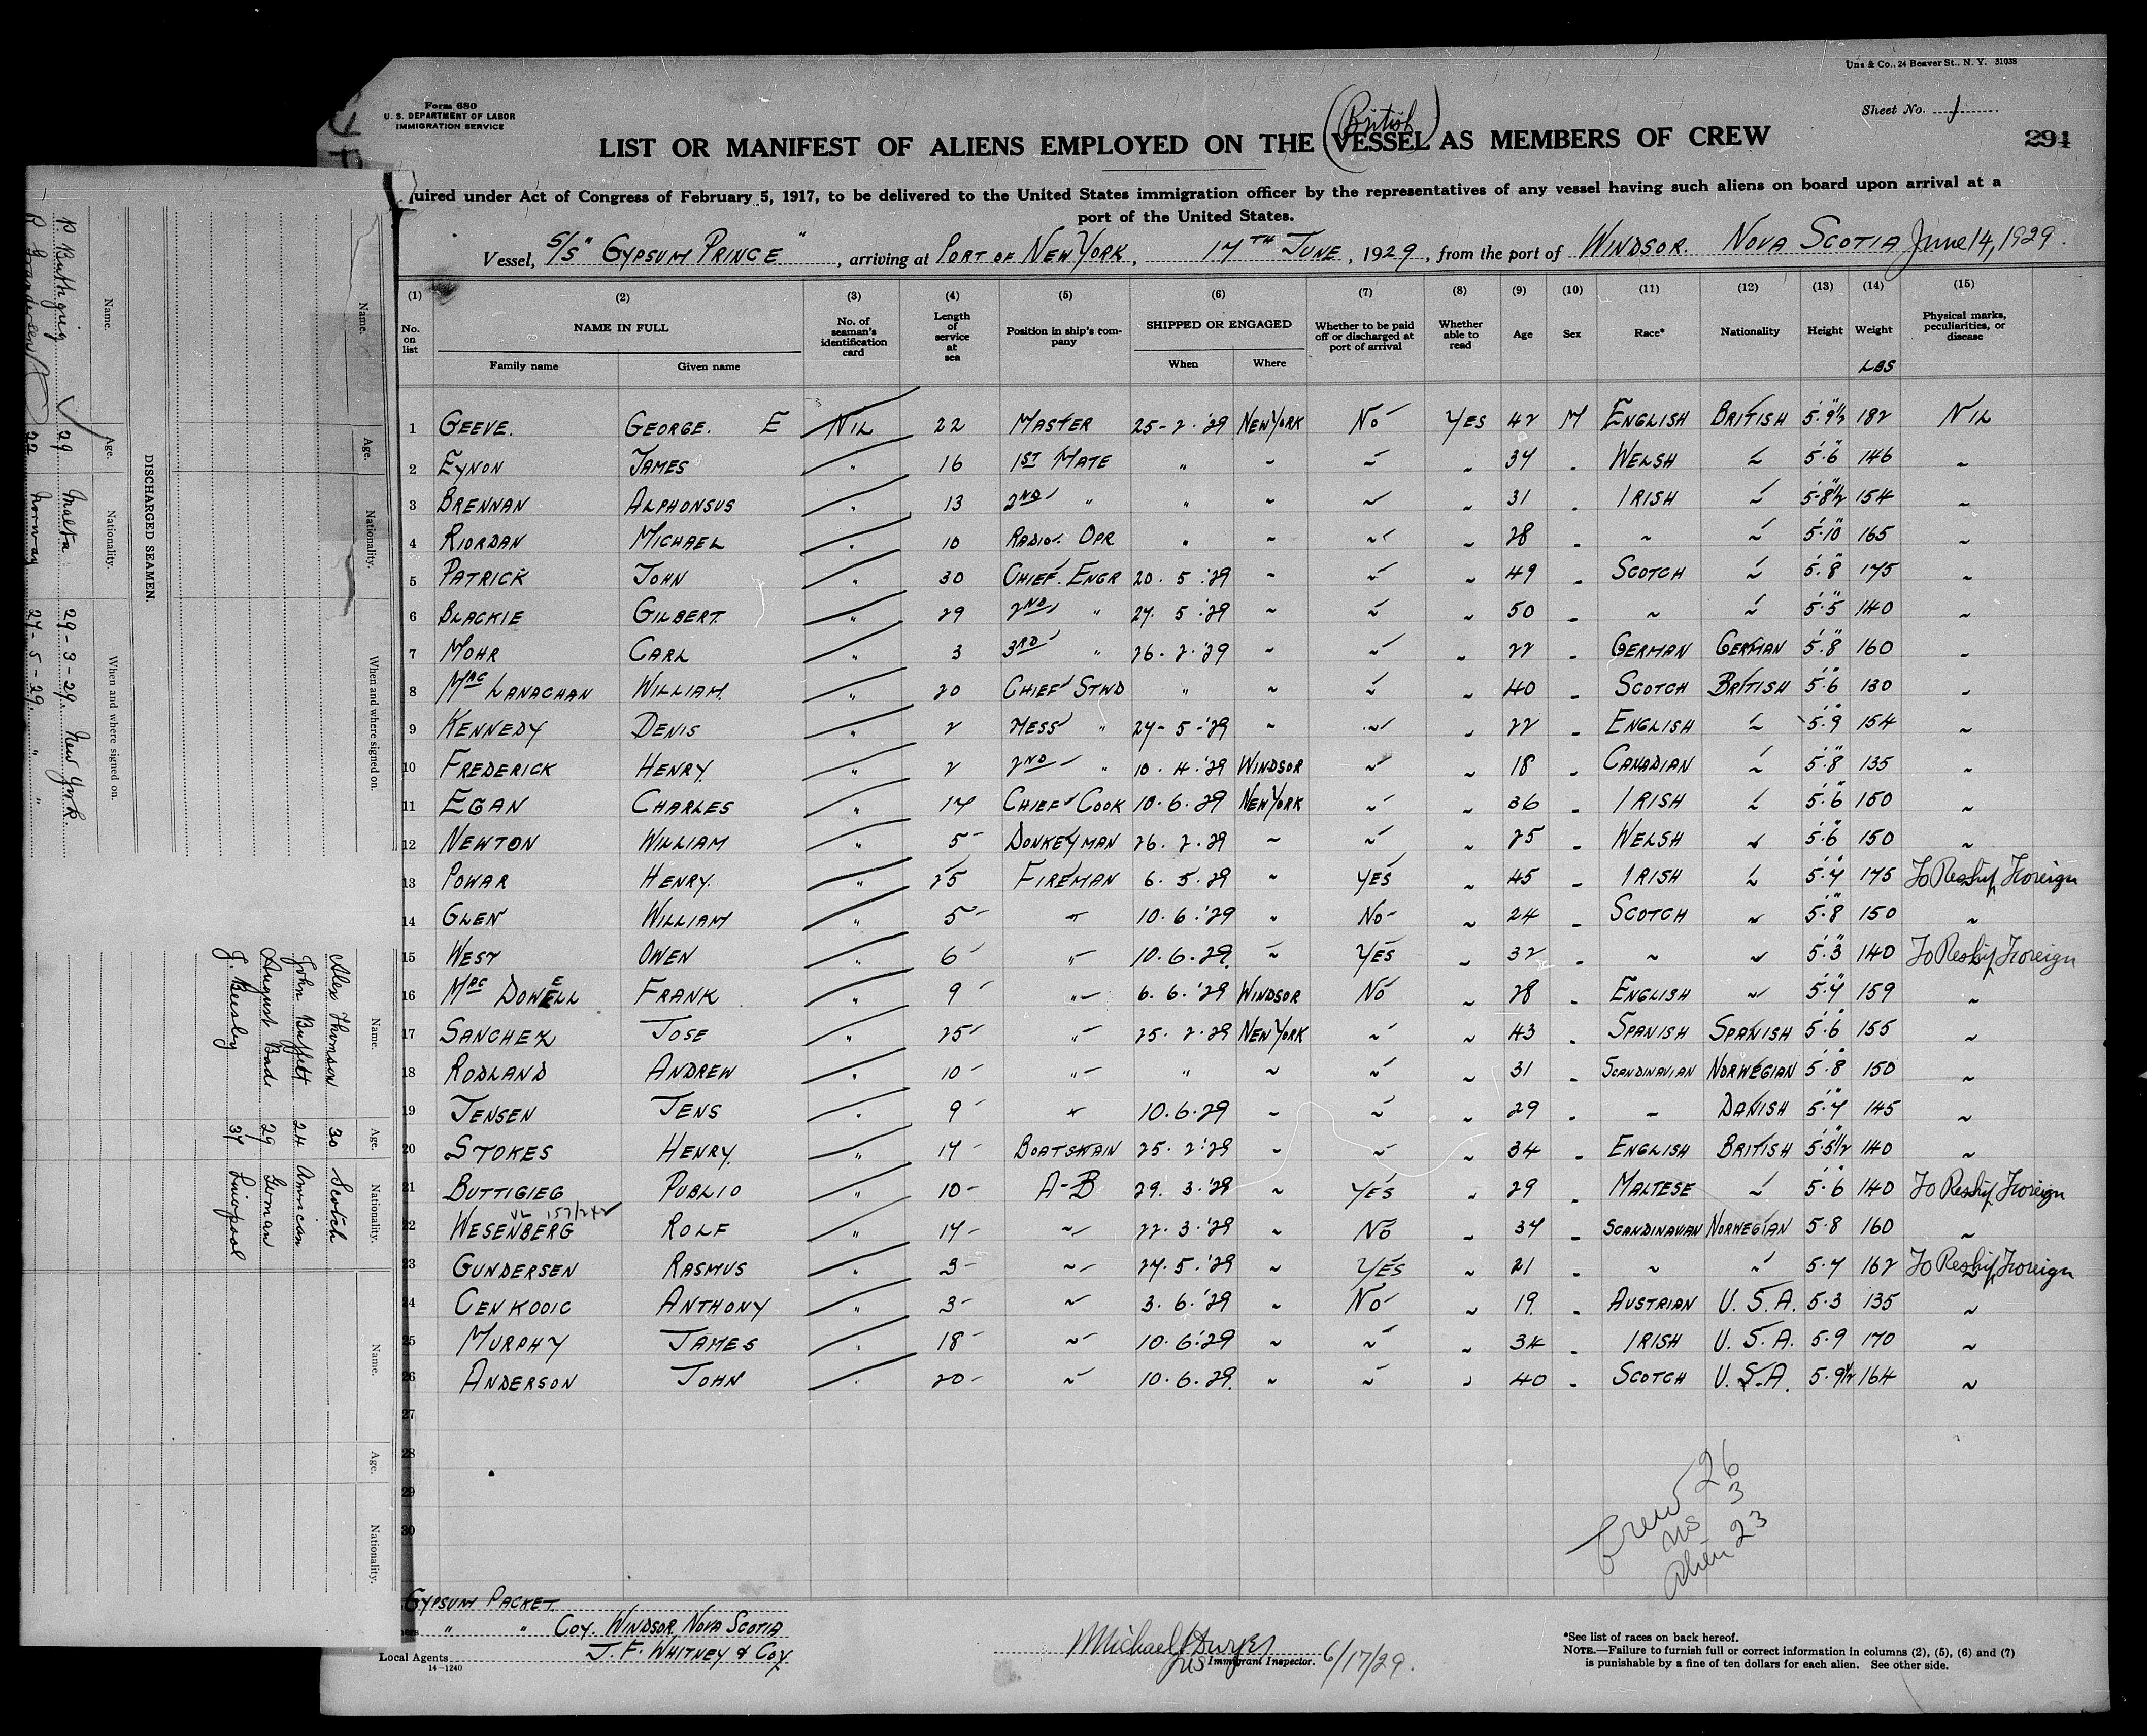 Uns & Co., 24 Beaver St., N. Y. 31038
Form 680
U. S. DEPARTMENT OF LABOR
IMMIGRATION SERVICE
Sheet No. 1
(British)
LIST OR MANIFEST OF ALIENS EMPLOYED ON THE VESSEL AS MEMBERS OF CREW
291
uired under Act of Congress of February 5, 1917, to be delivered to the United States immigration officer by the representatives of any vessel having such aliens on board upon arrival at a
port of the United States.
Vessel, S/S "GYPSUM PRINCE", arriving at PORT OF NEW YORK, 17TH JUNE, 1929, from the port of WINDSOR. NOVA SCOTIA June 14, 1929.
(1) (2) (3) (4) (5) (6) (7) (8) (9) (10) (11) (12) (13) (14) (15)
No. on list NAME IN FULL Family name Given name No. of seaman's identification card Length of service at sea Position in ship's company SHIPPED OR ENGAGED When Where Whether to be paid off or discharged at port of arrival Whether able to read Age Sex Race* Nationality Height Weight LBS Physical marks, peculiarities, or disease
1 GEEVE. GEORGE. E NIL 22 MASTER 25-2-'29 NEW YORK NO YES 42 M ENGLISH BRITISH 5'.9"½ 182 NIL
2 EYNON JAMES " 16 1ST MATE " ~ ~ " 34 . WELSH ~ 5'.6" 146 ~
3 BRENNAN ALPHONSUS " 13 2ND " " ~ ~ " 31 . IRISH ~ 5'.8"½ 154 ~
4 RIORDAN MICHAEL " 10 RADIO. OPR " ~ ~ ~ 28 . ~ ~ 5'.10" 165 ~
5 PATRICK JOHN " 30 CHIEF. ENGR 20.5.'29 ~ ~ ~ 49 . SCOTCH ~ 5'.8" 175 ~
6 BLACKIE GILBERT. " 29 2ND " 27.5.'29 ~ ~ ~ 50 . ~ ~ 5'.5" 140 ~
7 MOHR CARL " 3 3RD " 26.2.'29 ~ ~ ~ 22 . GERMAN GERMAN 5'.8" 160 ~
8 MAC LANACHAN WILLIAM. " 20 CHIEF STWD " ~ ~ ~ 40 . SCOTCH BRITISH 5'.6" 130 ~
9 KENNEDY DENIS " 2 MESS " 27-5-'29 ~ ~ ~ 22 . ENGLISH ~ 5'.9" 154 ~
10 FREDERICK HENRY. " 2 2ND " 10.4.'29 WINDSOR ~ ~ 18 . CANADIAN ~ 5'.8" 135 ~
11 EGAN CHARLES " 17 CHIEF COOK 10.6.29 NEW YORK ~ ~ 36 . IRISH ~ 5'.6" 150 ~
12 NEWTON WILLIAM " 5 DONKEYMAN 26.2.29 ~ ~ ~ 25 . WELSH ~ 5'.6" 150 ~
13 POWAR HENRY. " 25 FIREMAN 6.5.29 ~ YES ~ 45 . IRISH ~ 5'.7" 175 To Reship Foreign
14 GLEN WILLIAM " 5 " 10.6.'29 ~ NO ~ 24 . SCOTCH ~ 5'.8" 150 ~
15 WEST OWEN " 6 " 10.6.29. ~ YES ~ 32 . ~ ~ 5'.3" 140 To Reship Foreign
16 MAC DOWELL FRANK " 9 " 6.6.'29 WINDSOR NO ~ 28 . ENGLISH ~ 5'.7" 159 ~
17 SANCHEZ JOSE " 25 " 25.2.29 NEW YORK ~ ~ 43 . SPANISH SPANISH 5'.6" 155 ~
18 RODLAND ANDREW " 10 " " ~ ~ ~ 31 . SCANDINAVIAN NORWEGIAN 5'.8" 150 ~
19 JENSEN JENS " 9 " 10.6.29 ~ ~ ~ 29 . ~ DANISH 5'.7" 145 ~
20 STOKES HENRY. " 17 BOATSWAIN 25.2.'29 ~ ~ ~ 34 . ENGLISH BRITISH 5'.5"½ 140 ~
21 BUTTIGIEG PUBLIO " 10 A-B 29.3.'29 ~ YES ~ 29 . MALTESE ~ 5'.6" 140 To Reship Foreign
22 WESENBERG ROLF " 17 ~ 22.3.'29 ~ NO ~ 37 . SCANDINAVIAN NORWEGIAN 5.8 160 ~
23 GUNDERSEN RASMUS " 3 ~ 27.5.'29 ~ YES ~ 21 . ~ " 5.7 162 To Reship Foreign
24 CENKODIC ANTHONY " 3 ~ 3.6.'29 ~ NO ~ 19 . AUSTRIAN U.S.A. 5.3 135 ~
25 MURPHY JAMES " 18 ~ 10.6.'29 ~ ~ ~ 34 . IRISH U.S.A. 5.9 170 ~
26 ANDERSON JOHN " 20 ~ 10.6.29. ~ ~ ~ 40 . SCOTCH U.S.A. 5.9½ 164 ~
27
28
29
30
Crew 26
US 3
Alien 23
GYPSUM PACKET
" " COY. WINDSOR, NOVA SCOTIA
Local Agents J. F. WHITNEY & COY
14-1240
Michael J Dwyer
Immigrant Inspector. 6/17/29.
*See list of races on back hereof.
NOTE.—Failure to furnish full or correct information in columns (2), (5), (6) and (7)
is punishable by a fine of ten dollars for each alien. See other side.
Name. Age. Nationality. When and where signed on.
DISCHARGED SEAMEN.
Name. Age. Nationality. When and where signed on.
P. Buthgieig 29 Malta 29-3-29. New York.
22 Norway 27-5-29. " "
Name. Age. Nationality.
Alex Thomson 30 Scotch
John Buffett 24 American
August Bade 29 German
J. Beesley 37 Liverpool
Name. Age. Nationality.